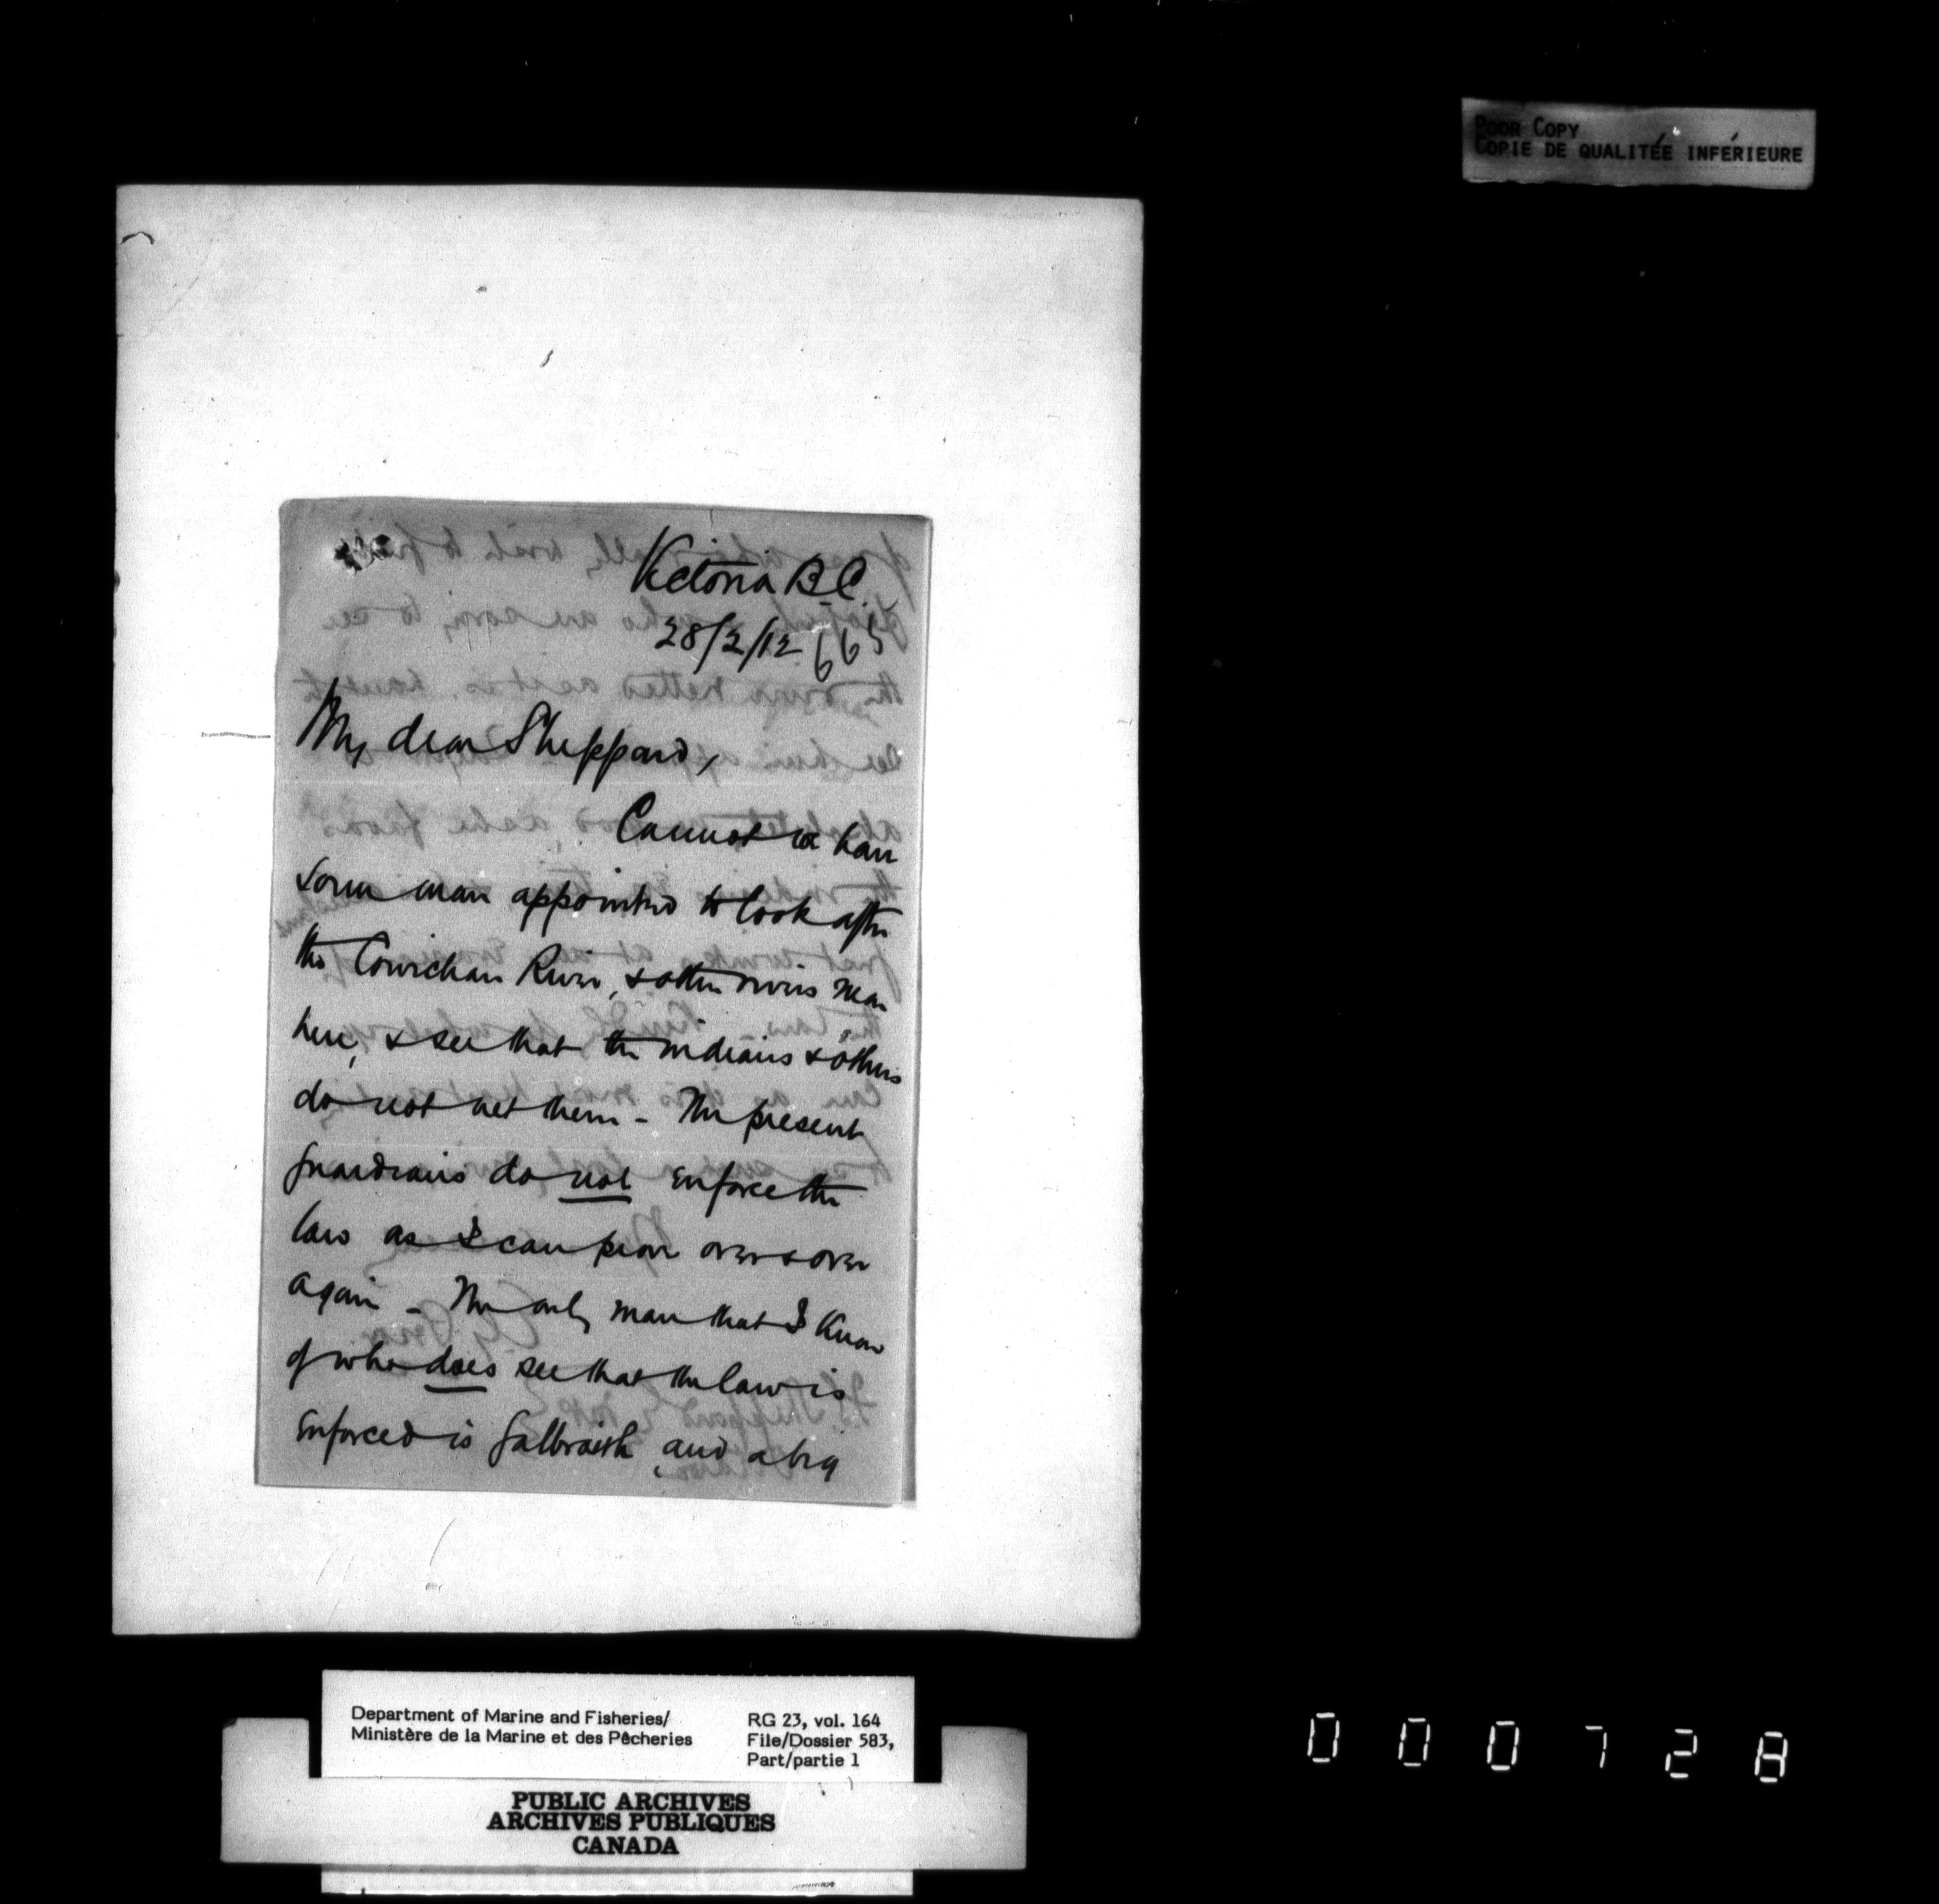 POOR COPY
COPIE DE QUALITÉE INFÉRIEURE
Victoria B.C.
28/2/12 665
My dear Sheppard,
Cannot we have
some man appointed to look after
the Cowichan River, & other rivers near
here, & see that the indians & others
do not net them - The present
guardians do not enforce the
law as I can prove over & over
again - The only man that I know
of who does see that the law is
enforced is Galbraith and a big
Department of Marine and Fisheries/
Ministère de la Marine et des Pêcheries
RG 23, vol. 164
File/Dossier 583,
Part/partie 1
PUBLIC ARCHIVES
ARCHIVES PUBLIQUES
CANADA
000728